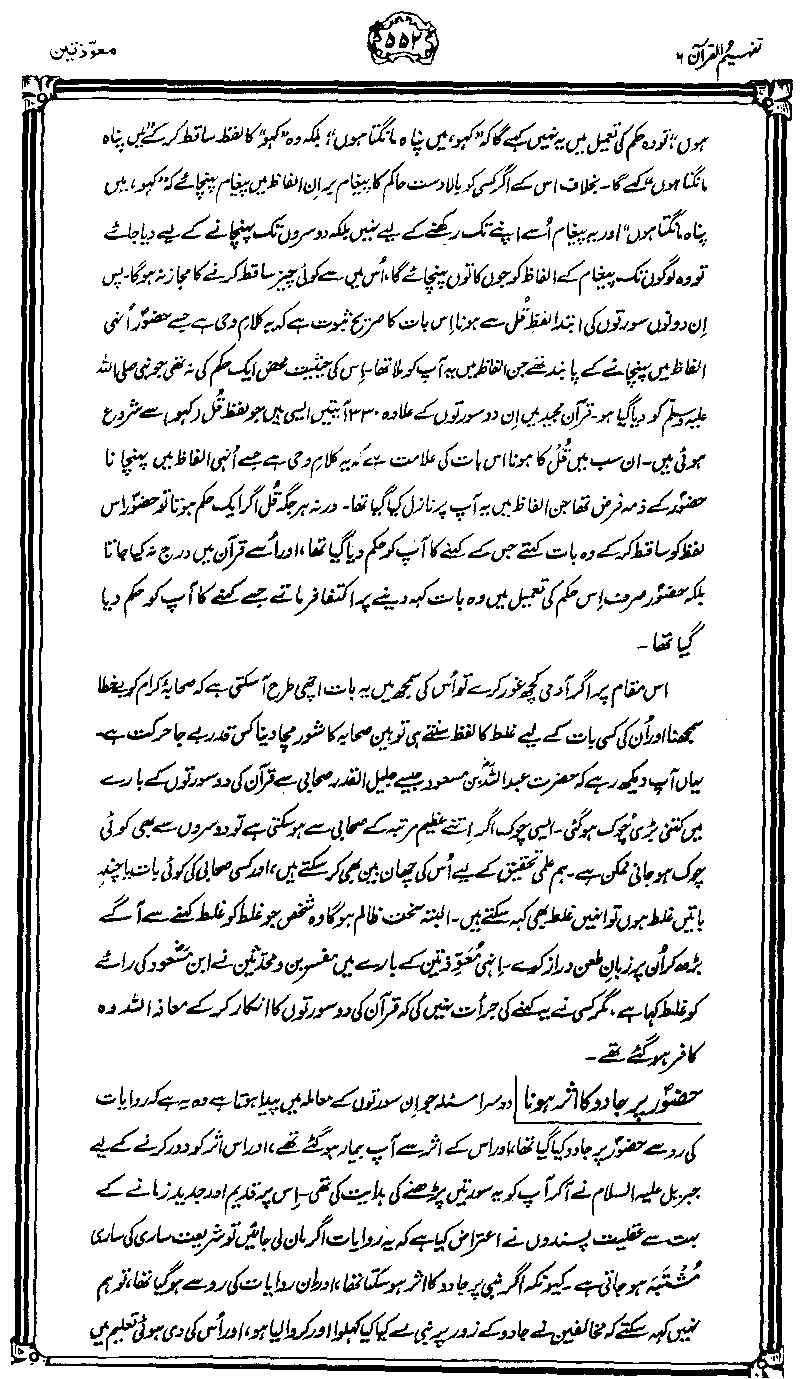 تفہیم القرآن ۶
۵۵۲
معوّذتین
ہوں“ تو وہ حکم کی تعمیل میں یہ نہیں کہے گا کہ ”کہو، میں پناہ مانگتا ہوں“، بلکہ وہ ”کہو“ کا لفظ ساقط کر کے ”میں پناہ
مانگتا ہوں“ کہے گا۔ بخلاف اس کے اگر کسی کو بالادست حاکم کا پیغام بر اِن الفاظ میں پیغام پہنچائے کہ ”کہو، میں
پناہ مانگتا ہوں“ اور یہ پیغام اُسے اپنے تک رکھنے کے لیے نہیں بلکہ دوسروں تک پہنچانے کے لیے دیا جائے
تو وہ لوگوں تک پیغام کے الفاظ کو جوں کا توں پہنچائے گا، اُس میں سے کوئی چیز ساقط کرنے کا مجاز نہ ہو گا۔ پس
اِن دونوں سورتوں کی ابتدا لفظ قُل سے ہونا اِس بات کا صریح ثبوت ہے کہ یہ کلامِ وحی ہے جسے حضورؐ اُنہی
الفاظ میں پہنچانے کے پابند تھے جن الفاظ میں یہ آپ کو ملا تھا۔ اِس کی حیثیت محض ایک حکم کی نہ تھی جو نبی صلی اللہ
علیہ وسلم کو دیا گیا ہو۔ قرآن مجید میں اِن دو سورتوں کے علاوہ ۳۳۰ آیتیں ایسی ہیں جو لفظ قُل (کہو) سے شروع
ہوئی ہیں۔ ان سب میں قُل کا ہونا اس بات کی علامت ہے کہ یہ کلامِ وحی ہے جسے اُنہی الفاظ میں پہنچا نا
حضورؐ کے ذمہ فرض تھا جن الفاظ میں یہ آپ پر نازل کیا گیا تھا۔ ورنہ ہر جگہ قُل اگر ایک حکم ہوتا تو حضورؐ اس
لفظ کو ساقط کر کے وہ بات کہتے جس کے کہنے کا آپ کو حکم دیا گیا تھا، اور اُسے قرآن میں درج نہ کیا جاتا
بلکہ حضورؐ صرف اِس حکم کی تعمیل میں وہ بات کہہ دینے پر اکتفا فرماتے جسے کہنے کا آپ کو حکم دیا
گیا تھا۔
اس مقام پر اگر آدمی کچھ غور کرے تو اُس کی سمجھ میں یہ بات اچھی طرح آ سکتی ہے کہ صحابۂ کرام کو بے خطا
سمجھنا اور اُن کی کسی بات کے لیے غلط کا لفظ سنتے ہی توہین صحابہ کا شور مچا دینا کس قدر بے جا حرکت ہے۔
یہاں آپ دیکھ رہے کہ حضرت عبداللہؓ بن مسعود جیسے جلیل القدر صحابی سے قرآن کی دو سورتوں کے بارے
میں کتنی بڑی چُوک ہو گئی۔ ایسی چوک اگر اِتنے عظیم مرتبہ کے صحابی سے ہو سکتی ہے تو دوسروں سے بھی کوئی
چوک ہو جانی ممکن ہے۔ ہم علمی تحقیق کے لیے اُس کی چھان بین بھی کر سکتے ہیں، اور کسی صحابی کی کوئی بات یا چند
باتیں غلط ہوں تو انہیں غلط بھی کہہ سکتے ہیں۔ البتہ سخت ظالم ہوگا وہ شخص جو غلط کو غلط کہنے سے آگے
بڑھ کر اُن پر زبانِ طعن دراز کرے۔ اِنہی مُعَوِّذتین کے بارے میں مفسرین و محدّثین نے ابن مسعود کی رائے
کو غلط کہا ہے، مگر کسی نے یہ کہنے کی جرأت نہیں کی کہ قرآن کی دو سورتوں کا انکار کر کے معاذ اللہ وہ
کافر ہو گئے تھے۔
حضورؐ پر جادو کا اثر ہونا دوسرا مسئلہ جو اِن سورتوں کے معاملہ میں پیدا ہوتا ہے وہ یہ ہے کہ روایات
کی رو سے حضورؐ پر جادو کیا گیا تھا، اور اس کے اثر سے آپ بیمار ہو گئے تھے، اور اس اثر کو دور کرنے کے لیے
جبریل علیہ السلام نے آ کر آپ کو یہ سورتیں پڑھنے کی ہدایت کی تھی۔ اِس پر قدیم اور جدید زمانے کے
بہت سے عقلیت پسندوں نے اعتراض کیا ہے کہ یہ روایات اگر مان لی جائیں تو شریعت ساری کی ساری
مُشتَبَہ ہو جاتی ہے۔ کیونکہ اگر نبی پر جادو کا اثر ہو سکتا تھا، اور اِن روایات کی رو سے ہو گیا تھا، تو ہم
نہیں کہہ سکتے کہ مخالفین نے جادو کے زور پر نبی سے کیا کیا کہلوا اور کروا لیا ہو، اور اُس کی دی ہوئی تعلیم میں